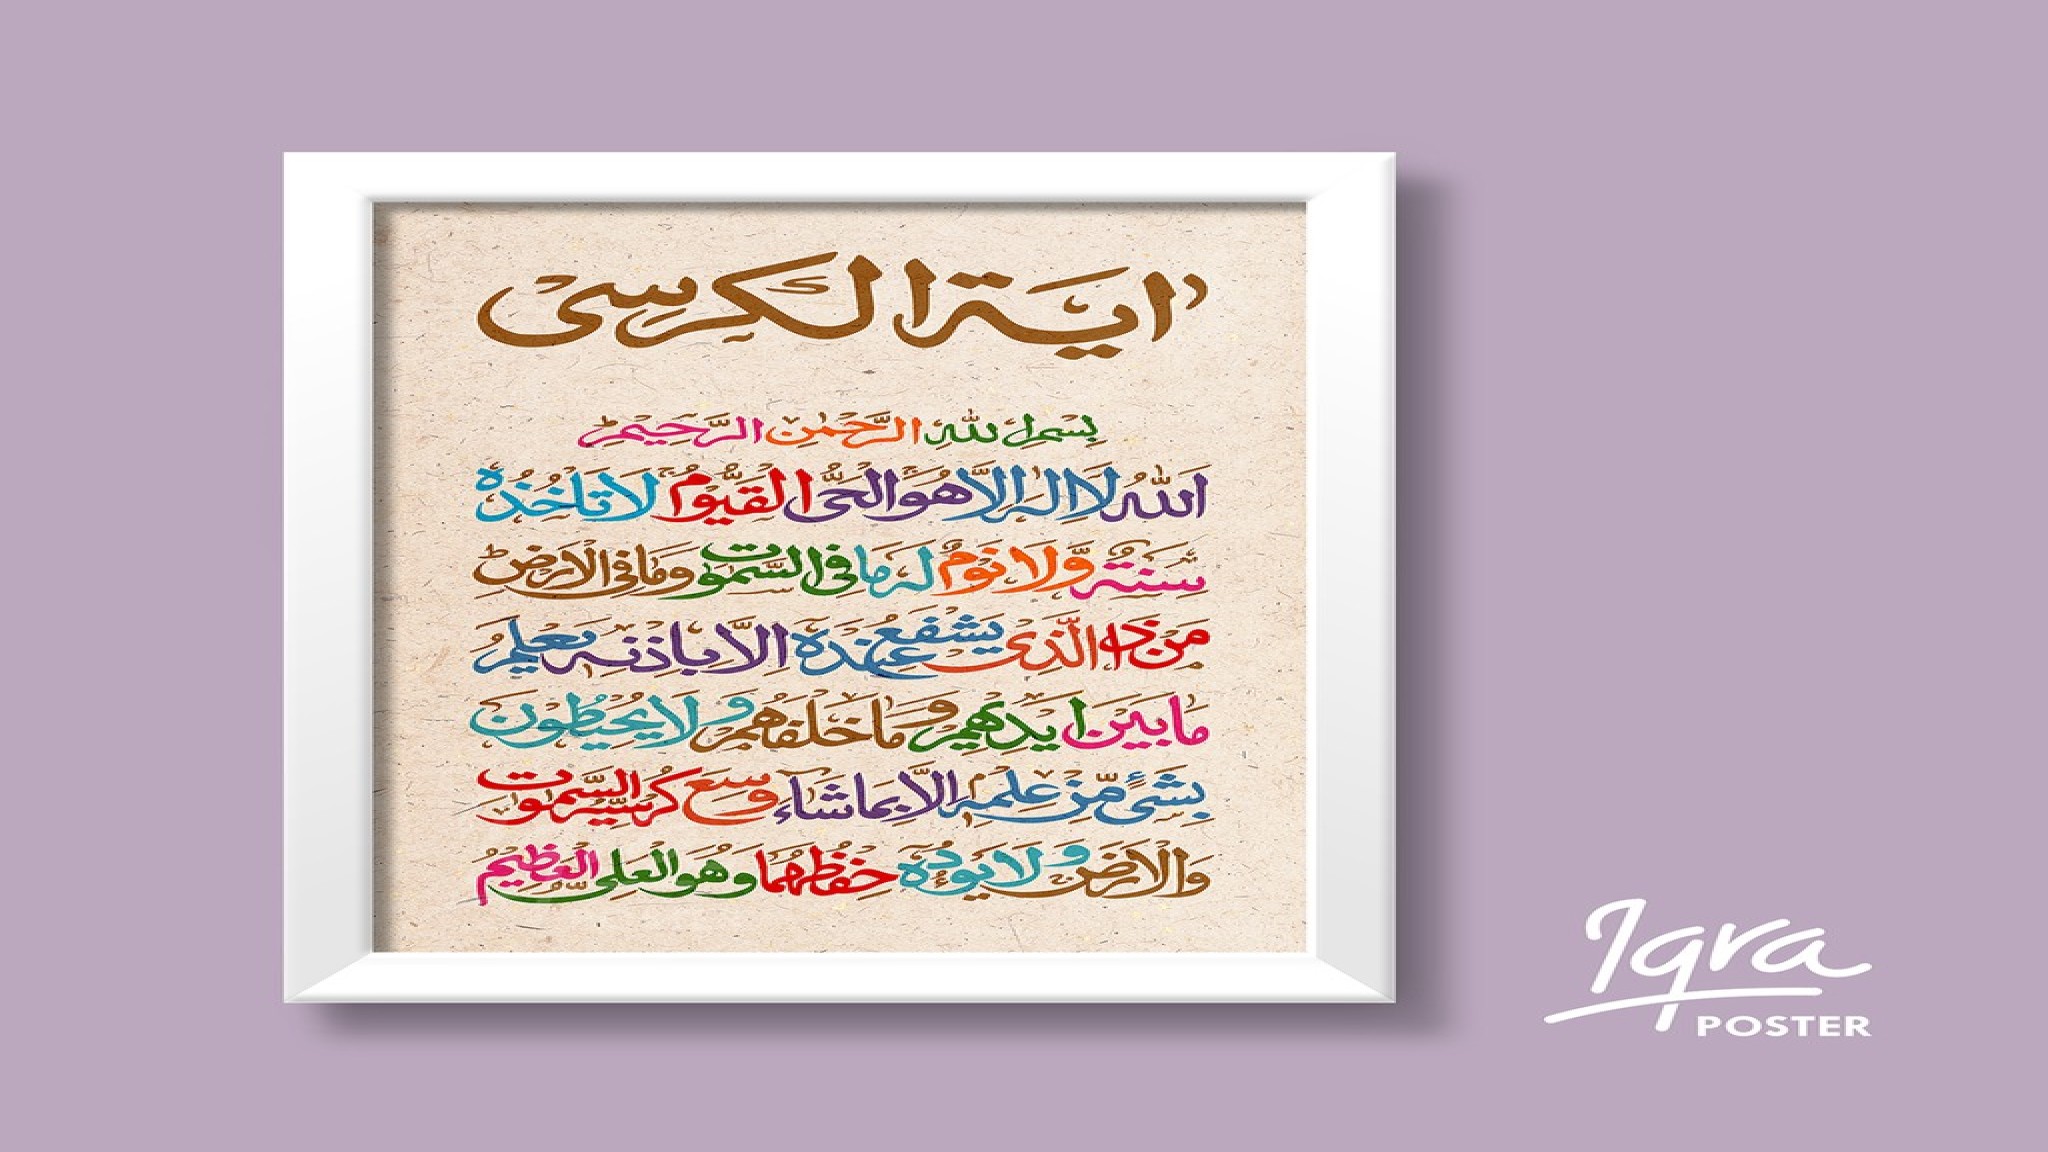 اٰية الكرسى
بسم الله الرحمٰن الرحيم
الله لا اله الا هو الحى القيوم لا تاخذه
سنة ولا نوم له ما فى السمٰوت وما فى الارض
من ذا الذى يشفع عنده الا باذنه يعلم
ما بين ايديهم وما خلفهم ولا يحيطون
بشىء من علمه الا بما شاء وسع كرسيه السمٰوت
والارض ولا يؤده حفظهما وهو العلى العظيم
Iqra
POSTER